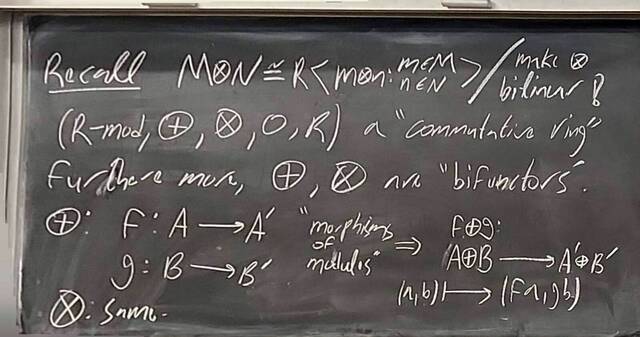 Recall M⊗N ≅ R<m⊗n: m∈M n∈N> / make ⊗ bilinear !
(R-mod, ⊕, ⊗, 0, R) a "commutative ring"
Furthermore, ⊕, ⊗ are "bifunctors".
⊕: f: A → A' "morphisms of modules" ⇒ f⊕g:
g: B → B' A⊕B → A'⊕B'
(a,b) ↦ (fa, gb)
⊗: same.